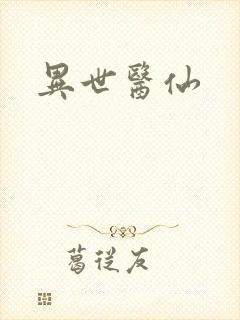 異世醫仙
葛從友